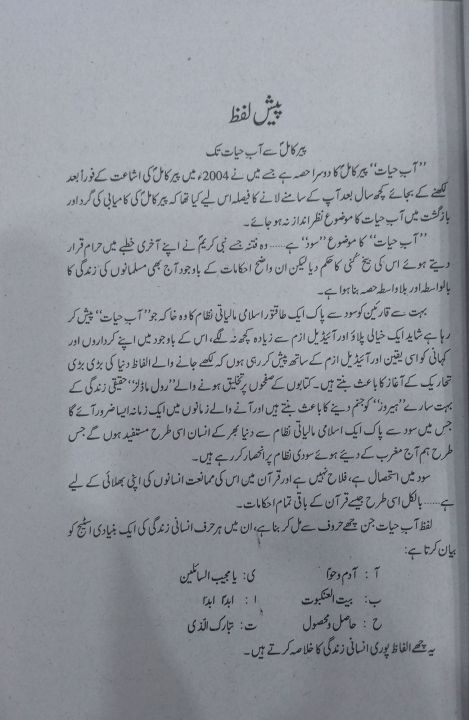 پیش لفظ
پیر کاملؐ سے آبِ حیات تک
’’آبِ حیات‘‘ پیر کاملؐ کا دوسرا حصہ ہے جسے میں نے 2004ء میں پیر کاملؐ کی اشاعت کے فوراً بعد
لکھنے کے بجائے کچھ سال بعد آپ کے سامنے لانے کا فیصلہ اس لیے کیا تھا کہ پیر کاملؐ کی کامیابی کی گرد اور
بازگشت میں آبِ حیات کا موضوع نظر انداز نہ ہو جائے۔
’’آبِ حیات‘‘ کا موضوع ’’سود‘‘ ہے..... وہ فتنہ جسے نبی کریمؐ نے اپنے آخری خطبے میں حرام قرار
دیتے ہوئے اس کی بیخ کنی کا حکم دیا لیکن ان واضح احکامات کے باوجود آج بھی مسلمانوں کی زندگی کا
بالواسطہ اور بلاواسطہ حصہ بنا ہوا ہے۔
بہت سے قارئین کو سود سے پاک ایک طاقتور اسلامی مالیاتی نظام کا وہ خاکہ جو ’’آبِ حیات‘‘ پیش کر
رہا ہے شاید ایک خیالی پلاؤ اور آئیڈیل ازم سے زیادہ کچھ نہ لگے، اس کے باوجود میں اپنے کرداروں اور
کہانی کو اسی یقین اور آئیڈیل ازم کے ساتھ پیش کر رہی ہوں کہ لکھے جانے والے الفاظ دنیا کی بڑی بڑی
تحاریک کے آغاز کا باعث بنتے ہیں۔ کتابوں کے صفحوں پر تخلیق ہونے والے ’’رول ماڈلز‘‘ حقیقی زندگی کے
بہت سارے ’’ہیروز‘‘ کو جنم دینے کا باعث بنتے ہیں اور آنے والے زمانوں میں ایک زمانہ ایسا ضرور آئے گا
جس میں سود سے پاک ایک اسلامی مالیاتی نظام سے دنیا بھر کے انسان اسی طرح مستفید ہوں گے جس
طرح ہم آج مغرب کے دیے ہوئے سودی نظام پر انحصار کر رہے ہیں۔
سود میں استحصال ہے، فلاح نہیں ہے اور قرآن میں اس کی ممانعت انسانوں کی اپنی بھلائی کے لیے
ہے..... بالکل اسی طرح جیسے قرآن کے باقی تمام احکامات۔
لفظ آبِ حیات جن چھے حروف سے مل کر بنا ہے، ان میں ہر حرف انسانی زندگی کی ایک بنیادی اسٹیج کو
بیان کرتا ہے:
آ : آدم و حوّا ی: یا مجیب السائلین
ب: بیت العنکبوت ا : ابدًا ابدًا
ح : حاصل و محصول ت: تبارک الّذی
یہ چھے الفاظ پوری انسانی زندگی کا خلاصہ کرتے ہیں۔